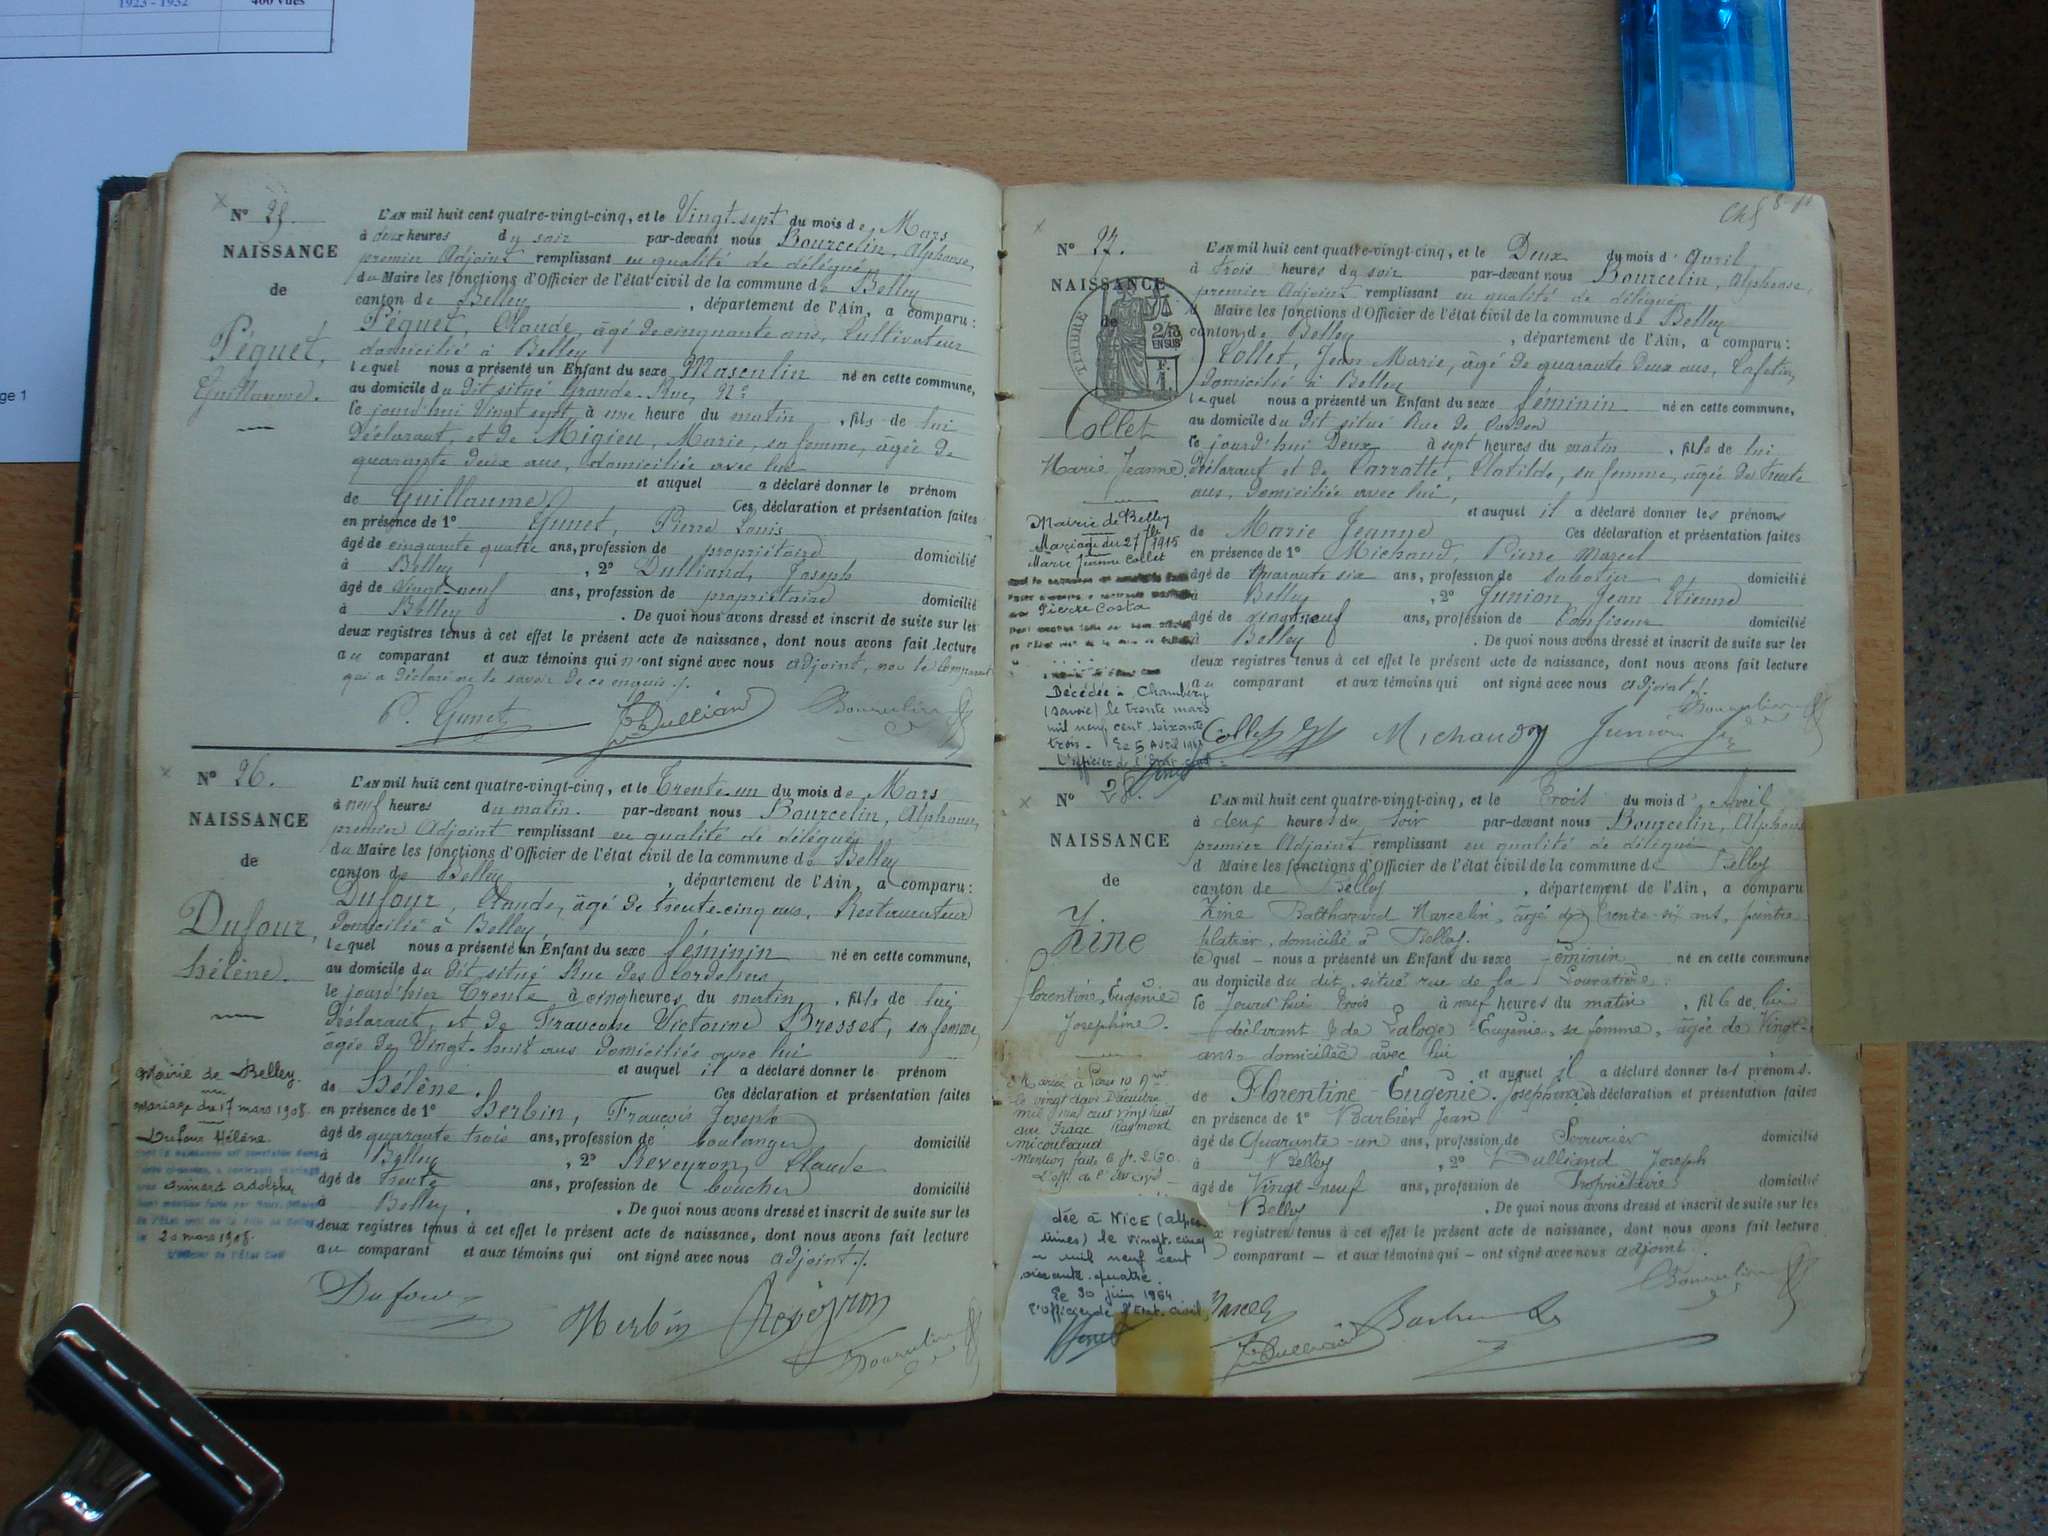 1923 - 1932
400 vues
ge 1
N° 25.
NAISSANCE
de
Péguet,
Guillaume.
L'AN mil huit cent quatre-vingt-cinq, et le Vingt-sept du mois de Mars
à deux heures du soir par-devant nous Bourcelin, Alphonse,
premier Adjoint remplissant en qualité de délégué
du Maire les fonctions d'Officier de l'état civil de la commune de Belley
canton de Belley, département de l'Ain, a comparu :
Péguet, Claude, âgé de cinquante ans, Cultivateur
domicilié à Belley
lequel nous a présenté un Enfant du sexe Masculin né en cette commune,
au domicile du dit situé Grande Rue, N°
le jourd'hui Vingt sept à une heure du matin, fils de lui
déclarant, et de Migieu, Marie, sa femme, âgée de
quarante deux ans, domiciliée avec lui
et auquel a déclaré donner le prénom
de Guillaume Ces déclaration et présentation faites
en présence de 1° Gunet, Pierre Louis
âgé de cinquante quatre ans, profession de propriétaire domicilié
à Belley, 2° Dulliand, Joseph
âgé de vingt-neuf ans, profession de propriétaire domicilié
à Belley. De quoi nous avons dressé et inscrit de suite sur les
deux registres tenus à cet effet le présent acte de naissance, dont nous avons fait lecture
au comparant et aux témoins qui n'ont signé avec nous adjoint, non le comparant
qui a déclaré ne le savoir de ce enquis ./.
P. Gunet Jh Dulliand Bourcelin
N° 26.
NAISSANCE
de
Dufour,
hélène.
Mairie de Belley
Mariage du 17 mars 1908.
Dufour Hélène
avec Guinard Adolphe
20 mars 1908.
L'Officier de l'État Civil
L'AN mil huit cent quatre-vingt-cinq, et le Trente-un du mois de Mars
à neuf heures du matin. par-devant nous Bourcelin, Alphonse,
premier Adjoint remplissant en qualité de délégué
du Maire les fonctions d'Officier de l'état civil de la commune de Belley
canton de Belley, département de l'Ain, a comparu :
Dufour, Claude, âgé de trente-cinq ans, Restaurateur
domicilié à Belley
lequel nous a présenté un Enfant du sexe féminin né en cette commune,
au domicile du dit situé Rue des Cordeliers
le jourd'hier Trente à cinq heures du matin, fille de lui
déclarant, et de Françoise Victorine Bresset, sa femme,
âgée de Vingt-huit ans domiciliée avec lui
et auquel il a déclaré donner le prénom
de Hélène. Ces déclaration et présentation faites
en présence de 1° Herbin, François Joseph
âgé de quarante trois ans, profession de boulanger domicilié
à Belley, 2° Reveyron, Claude
âgé de trente ans, profession de boucher domicilié
à Belley. De quoi nous avons dressé et inscrit de suite sur les
deux registres tenus à cet effet le présent acte de naissance, dont nous avons fait lecture
au comparant et aux témoins qui ont signé avec nous adjoint ./.
Dufour Herbin Reveyron
Bourcelin
N° 27.
NAISSANCE
de
TIMBRE
2/10
EN SUS
F.
1.
Collet
Marie Jeanne
Mairie de Belley
Mariage du 27 1915
Marie Jeanne Collet
Pierre Costa
Décédée à Chambéry
(Savoie) le trente mars
mil neuf cent soixante
trois. Le 5 Avril 1963
L'officier de l'Etat civil
L'AN mil huit cent quatre-vingt-cinq, et le Deux du mois d'Avril
à trois heures du soir par-devant nous Bourcelin, Alphonse,
premier Adjoint remplissant en qualité de délégué
Maire les fonctions d'Officier de l'état civil de la commune de Belley
canton de Belley, département de l'Ain, a comparu :
Collet, Jean Marie, âgé de quarante deux ans, Cafetier,
domicilié à Belley
lequel nous a présenté un Enfant du sexe féminin né en cette commune,
au domicile du dit situé Rue de
le jourd'hui Deux à sept heures du matin, fille de lui
déclarant et de Carrotte, Clotilde, sa femme, âgée de trente
ans, domiciliée avec lui,
et auquel il a déclaré donner les prénoms
de Marie Jeanne Ces déclaration et présentation faites
en présence de 1° Michaud, Pierre Marcel
âgé de quarante six ans, profession de sabotier domicilié
à Belley, 2° Junion, Jean Etienne
âgé de vingt neuf ans, profession de Confiseur domicilié
à Belley. De quoi nous avons dressé et inscrit de suite sur les
deux registres tenus à cet effet le présent acte de naissance, dont nous avons fait lecture
au comparant et aux témoins qui ont signé avec nous adjoint ./.
Bourcelin
Collet Michaud Junion
N° 28.
NAISSANCE
de
Zine
Florentine, Eugénie
Joséphine.
Mariée à Paris 10
le vingt deux Décembre
mil neuf cent vingt huit
au Isaac Raymond
L'off. de l'état civil
dée à NICE (Alpes
times) le vingt-cinq
mil neuf cent
soixante-quatre.
Le 30 juin 1964
l'Officier de l'Etat civil,
L'AN mil huit cent quatre-vingt-cinq, et le Trois du mois d'Avril
à deux heures du soir par-devant nous Bourcelin, Alphonse
premier Adjoint remplissant en qualité de délégué
d Maire les fonctions d'Officier de l'état civil de la commune de Belley
canton de Belley, département de l'Ain, a comparu
Zine Balthazard Marcelin, âgé de Trente six ans, peintre
platrier, domicilié à Belley.
lequel — nous a présenté un Enfant du sexe féminin né en cette commune
au domicile du dit, situé rue de la
le Jourd'hui Trois à neuf heures du matin, fille de lui
déclarant & de Laloge Eugénie, sa femme, âgée de Vingt-
ans domiciliée avec lui
et auquel il a déclaré donner les prénoms.
de Florentine Eugénie Joséphine Ces déclaration et présentation faites
en présence de 1° Barbier Jean
âgé de Quarante-un ans, profession de Serrurier domicilié
à Belley, 2° Dulliand Joseph
âgé de Vingt-neuf ans, profession de Propriétaire domicilié
Belley. De quoi nous avons dressé et inscrit de suite sur les
x registres tenus à cet effet le présent acte de naissance, dont nous avons fait lecture
comparant — et aux témoins qui — ont signé avec nous adjoint.
Bourcelin
Jh Dulliand